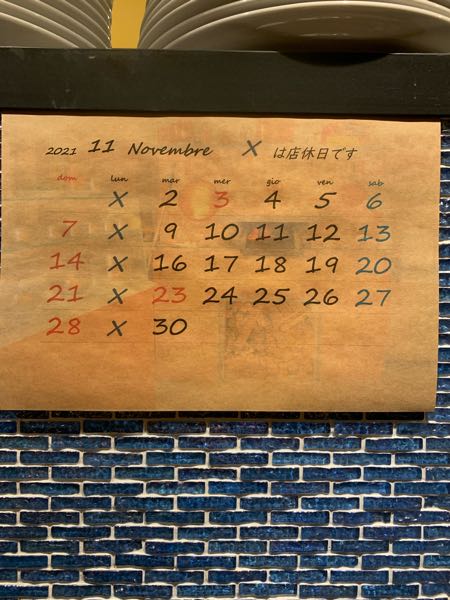 2021 11 Novembre X は店休日です
dom lun mar mer gio ven sab
X 2 3 4 5 6
7 X 9 10 11 12 13
14 X 16 17 18 19 20
21 X 23 24 25 26 27
28 X 30